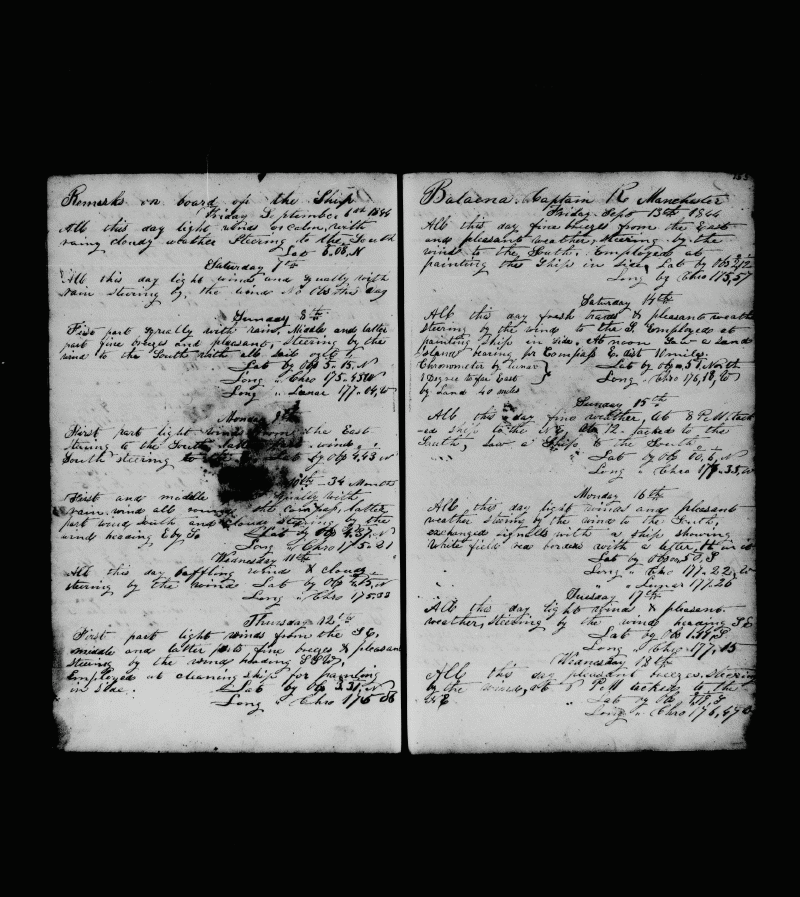 Remarks on board of the Ship
Friday September 6th 1844
All this day light winds or calm, with
rainy cloudy weather Steering to the South
Lat 6.08, N
Saturday 7th
All this day light winds and squally with
rain Steering by the wind No Obs this day
Sunday 8th
First part squally with rain, Middle and latter
part fine breezes and pleasant, Steering by the
wind to the South with all sail out
Lat by Obs 5.15, N
Long " Chro 175.45 W
Long " Lunar 177.04, W
Monday 9th
First part light winds from the East
steering to the South, latter part wind
South steering to the Lat by Obs 4.43, N
10th - 34 Months
First and middle squally with
rain wind all round the compass, latter
part wind South and cloudy steering by the
wind heading E by S Lat by Obs 4.37, N
Long " Chro 175.21
Wednesday 11th
All this day baffling wind & cloudy
steering by the wind Lat by Obs 4.15, N
Long " Chro 175.33
Thursday 12th
First part light winds from the SE,
middle and latter parts fine breezes & pleasant
Steering by the wind heading SSW,
Employed at cleaning ship for painting
in side. Lat by Obs 3.31, N
Long " Chro 175
183
Balaena. Captain R Manchester
Friday Sept 13th 1844
All this day fine breezes from the East
and pleasant weather, steering by the
wind to the South. Employed at
painting the Ship in side, Lat by Obs 2/12
Long by Chro 175,57
Saturday 14th
All this day fresh breezes & pleasant weath
steering by the wind to the S Employed at
painting Ship in side. At noon Saw a sand
Island bearing per Compass E. dist 10 miles.
Chronometer by Lunar Lat by Obs 51, North
1 Degree to far East Long " Chro 176,18, W
by Land 40 miles
Sunday 15th
All this day fine weather, At 8 P.M. tack
ed ship to the NE, At 12 tacked to the
South, Saw a Ship to the South
Lat by Obs 00.6, N
Long " Chro 177.35, W
Monday 16th
All this day light winds and pleasant
weather Steering by the wind to the South,
exchanged signals with a ship showing
White field red border with a letter, H in it
Lat by Obs 50, S
Long " Chro 177.22, W
" " Lunar 177.26
Tuesday 17th
All this day light wind & pleasant.
weather, Steering by the wind heading SE
Lat by Obs 1.39 S
Long " Chro 177,15
Wednesday 18th
All this day pleasant breezes. Steering
by the wind, at 5 P.M tacked to the
NE Lat by Obs S
Long " Chro 176,47